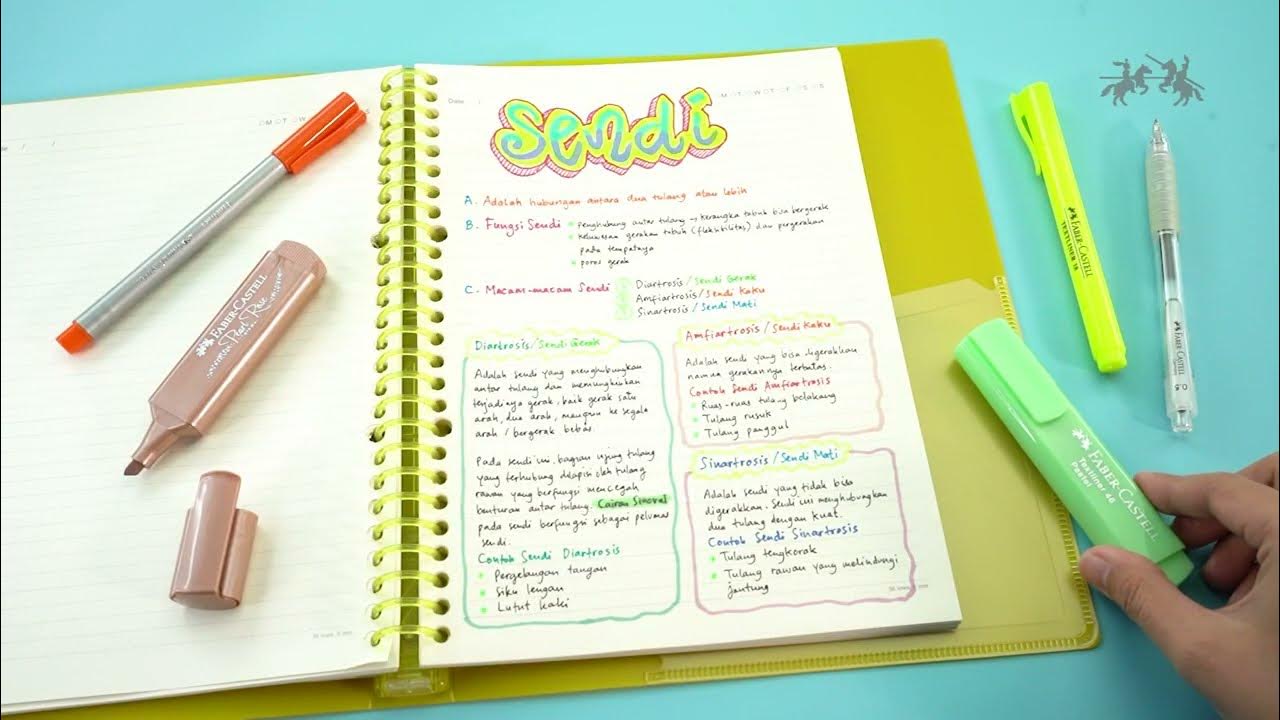 Date
Sendi
A. Adalah hubungan antara dua tulang atau lebih
B. Fungsi Sendi
penghubung antar tulang → kerangka tubuh bisa bergerak
keluwesan gerakan tubuh (fleksibilitas) dan pergerakan
pada tempatnya
poros gerak
C. Macam-macam Sendi
Diartrosis/Sendi Gerak
Amfiartrosis/Sendi Kaku
Sinartrosis/Sendi Mati
Diartrosis/Sendi Gerak
Adalah sendi yang menghubungkan
antar tulang dan memungkinkan
terjadinya gerak. baik gerak satu
arah, dua arah, maupun ke segala
arah / bergerak bebas.
Pada sendi ini, bagian ujung tulang
yang terhubung dilapisi oleh tulang
rawan yang berfungsi mencegah
benturan antar tulang. Cairan Sinoval
pada sendi berfungsi sebagai pelumas
sendi.
Contoh Sendi Diartrosis
Pergelangan tangan
Siku lengan
Lutut kaki
Amfiartrosis/Sendi Kaku
Adalah sendi yang bisa digerakkan
namun gerakannya terbatas.
Contoh Sendi Amfiartrosis
Ruas-ruas tulang belakang
Tulang rusuk
Tulang panggul
Sinartrosis/Sendi Mati
Adalah sendi yang tidak bisa
digerakkan. Sendi ini menghubungkan
dua tulang dengan kuat.
Contoh Sendi Sinartrosis
Tulang tengkorak
Tulang rawan yang melindungi
jantung
FABER-CASTELL
Pearl Rose
FABER-CASTELL
TEXTLINER 38
FABER-CASTELL
0.5
FABER-CASTELL
Textliner 46
Pastel